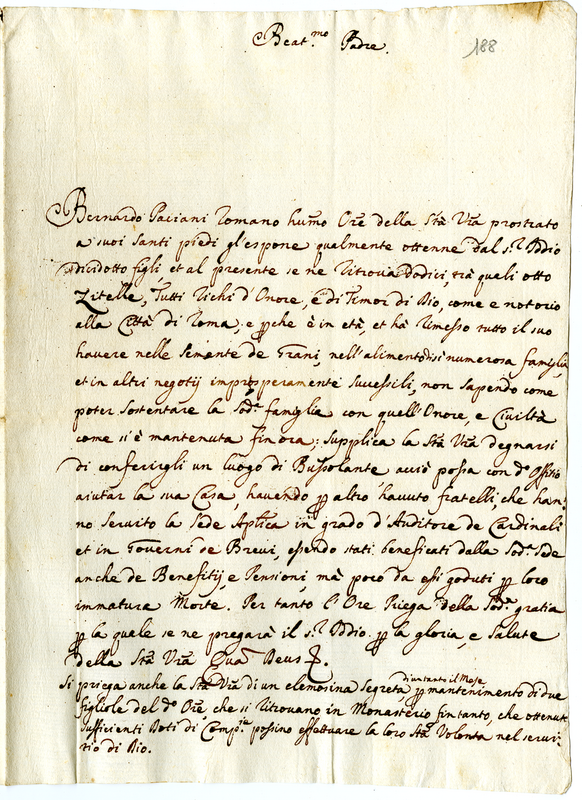 Beat.mo Padre.
188
Bernardo Paciani Romano humo Ore della Sta Vra prostrato
a suoi Santi piedi gl'espone qualmente ottenne dal s.r Iddio
dicidotto figli et al presente se ne ritrova Dodici, trà quali otto
Zitelle, Tutti richi d'Onore, è di Timor di Dio, come e notorio
alla Città di Roma, e pche è in età, et hà rimesso tutto il suo
havere nelle semente de Grani, nell'alimento di sì numerosa famiglia,
et in altri negotij improsperamente successili, non sapendo come
poter sostentare la sod.a famiglia con quell'Onore, e Civiltà
come si è mantenuta fin ora: supplica la Sta Vra degnarsi
di conferirgli un luogo di Bussolante acciò possa con d.o Offitio
aiutar la sua Casa, havendo p altro havuto fratelli, che han-
no servito la Sede Aplica in grado d'Auditore de Cardinali
et in Governi de Brevi, essendo stati beneficati dalla Sod.a Sede
anche de Benefitij, e Pensioni, mà poco da essi goduti p loro
immatura Morte. Per tanto l'Ore Priega della Sod.a gratia
p la quale se ne pregarà il s.r Iddio p la gloria, e salute
della Sta Vra Quam Deus
Si priega anche la Sta Vra di un elemosina segreta, di un tanto il Mese p mantenimento di due
figliole del d.o Ore, che si ritrovano in Monasterio fin tanto, che ottenute
sufficienti Doti di Comp.ie possino effettuare la loro Sta Volontà nel servi-
tio di Dio.